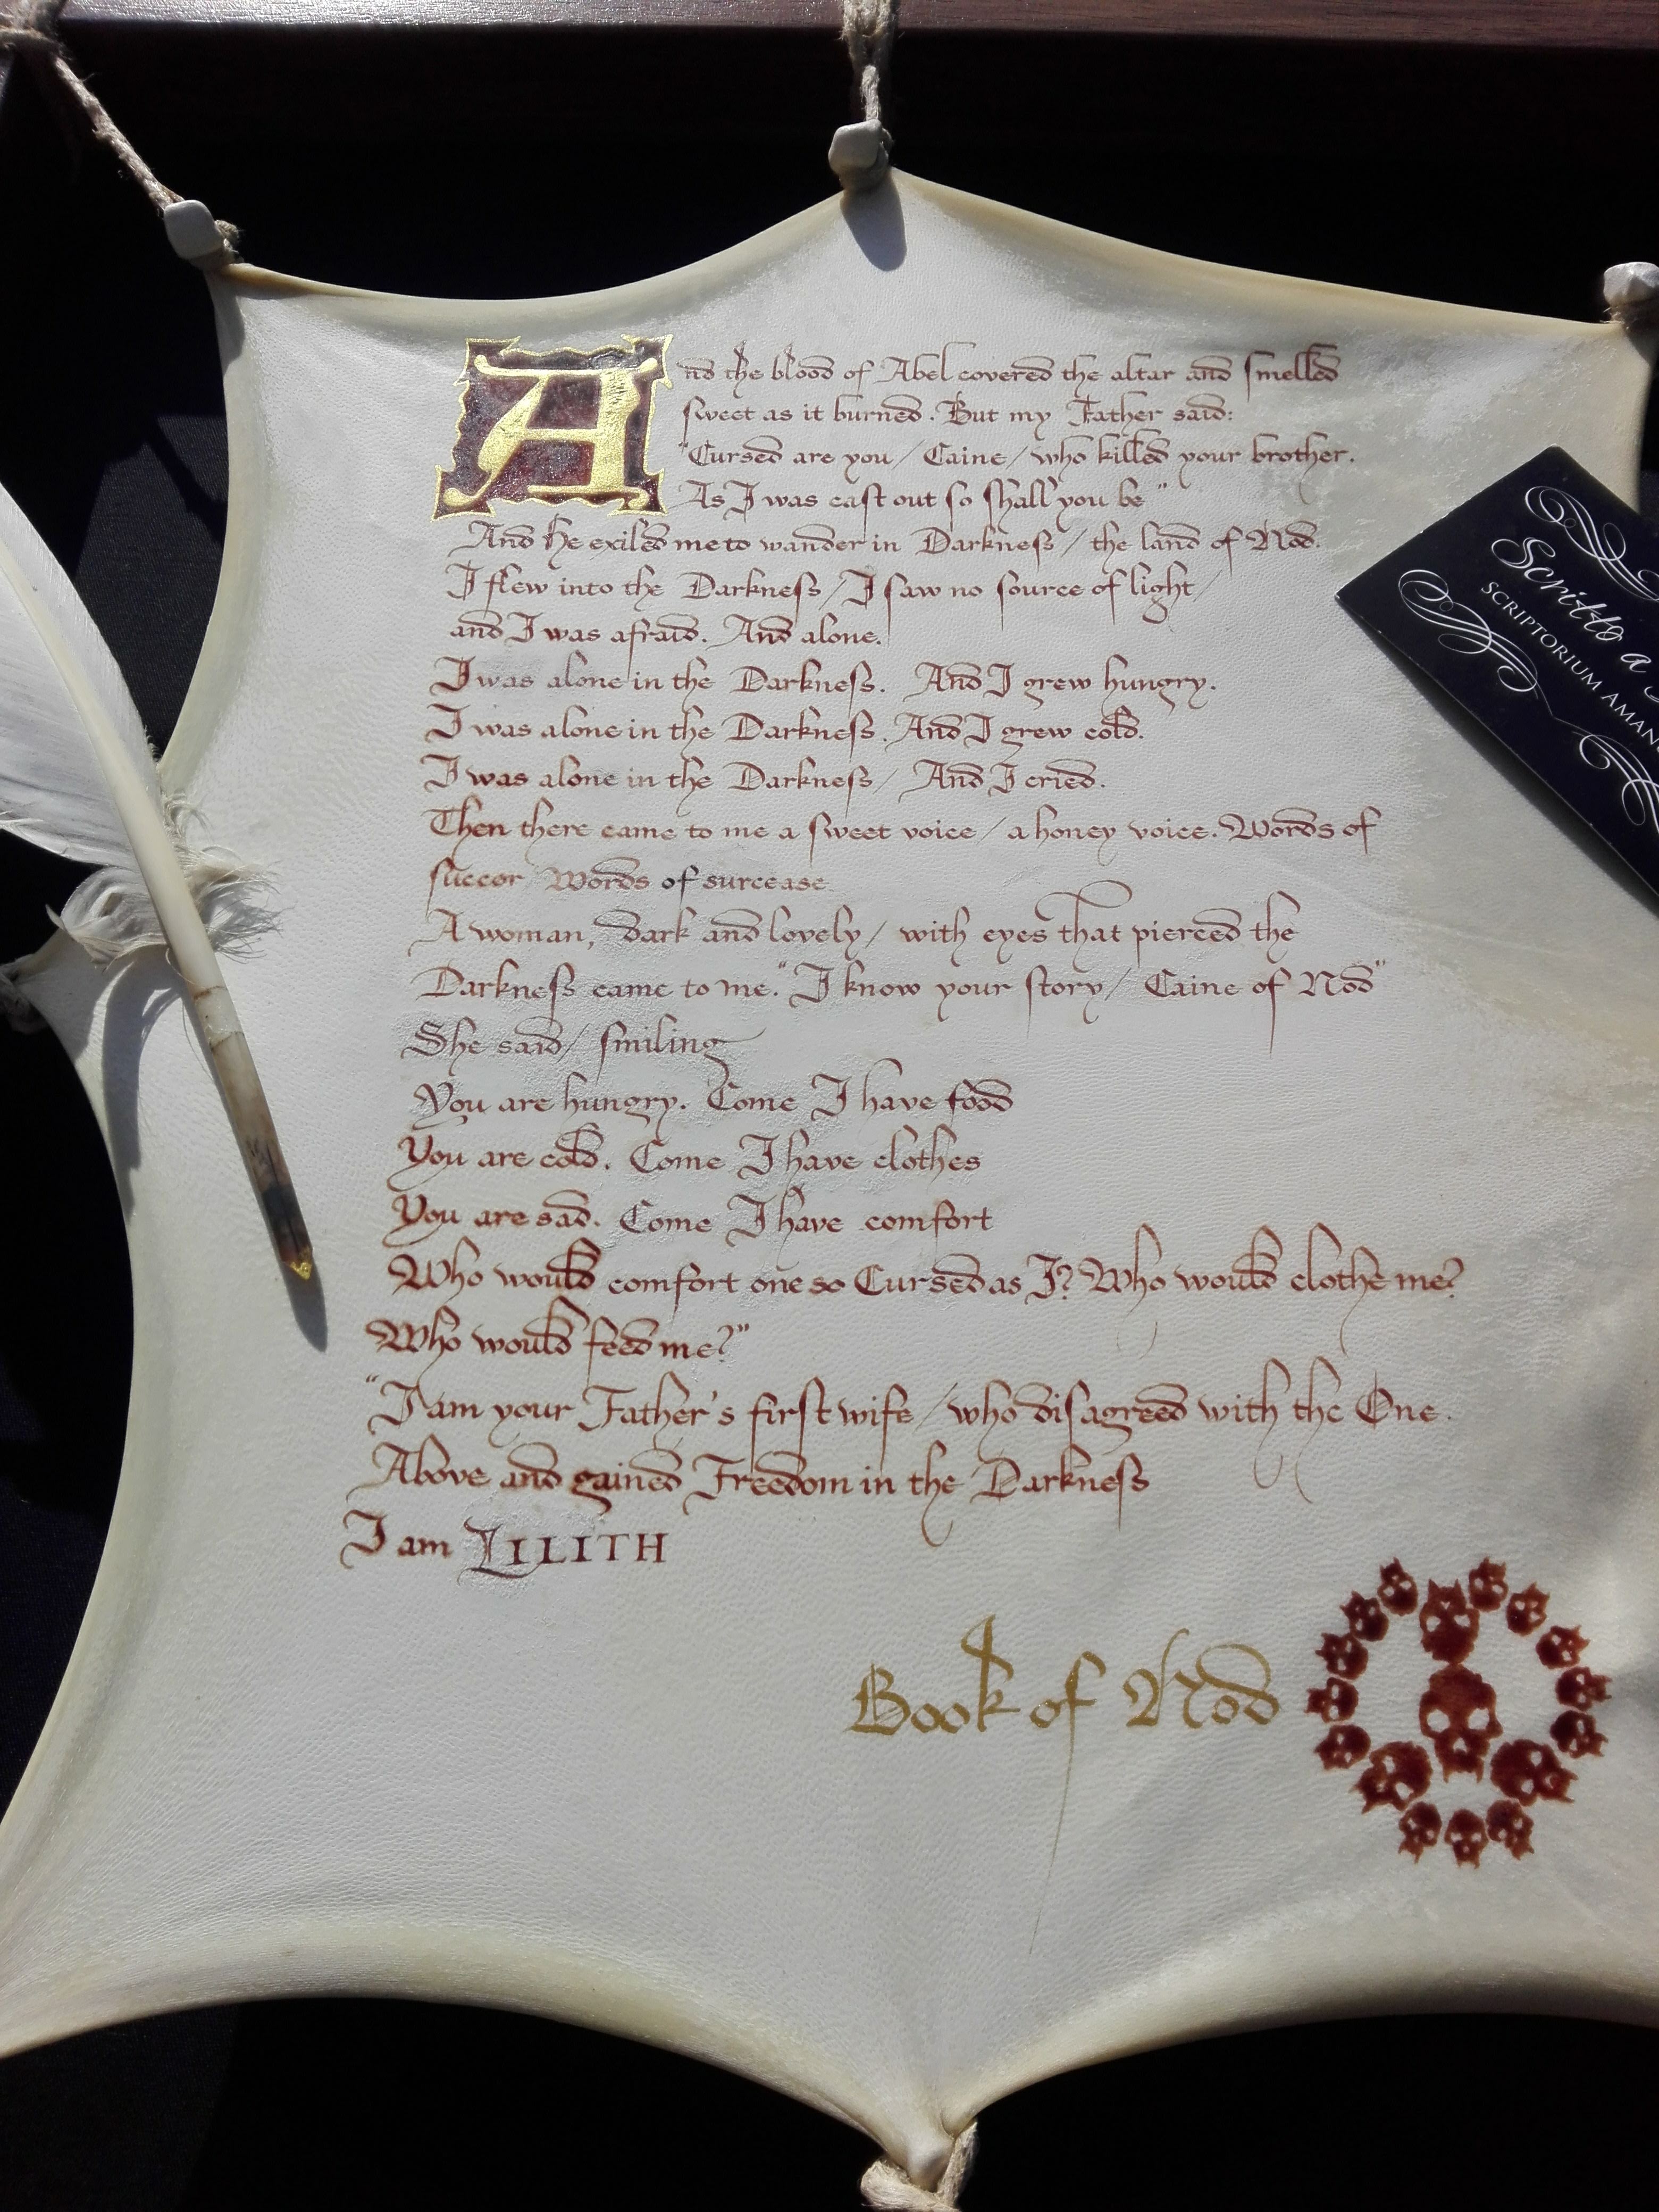 And the blood of Abel covered the altar and smelled
sweet as it burned. But my Father said:
"Cursed are you / Caine / who killed your brother.
As I was cast out so shall you be"
And he exiled me to wander in Darkness / the land of Nod.
I flew into the Darkness / I saw no source of light /
and I was afraid. And alone.
I was alone in the Darkness. And I grew hungry.
I was alone in the Darkness. And I grew cold.
I was alone in the Darkness / And I cried.
Then there came to me a sweet voice / a honey voice. Words of
succor Words of surcease
A woman, dark and lovely / with eyes that pierced the
Darkness came to me. "I know your story / Caine of Nod"
She said / smiling
You are hungry. Come I have food
You are cold. Come I have clothes
You are sad. Come I have comfort
Who would comfort one so Cursed as I? Who would clothe me?
Who would feed me?"
"I am your Father's first wife / who disagreed with the One
Above and gained Freedom in the Darkness
I am LILITH
Book of Nod
Scritto a
SCRIPTORIUM